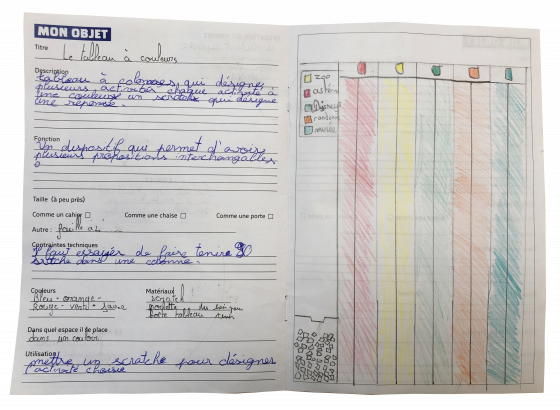 MON OBJET
Titre
Le tableau à couleurs
Description
tableau à colonnes qui désigne
plusieurs activités chaque activité à
une couleur un scratch qui désigne
une réponse.
Fonction
Un dispositif qui permet d'avoir
plusieurs propositions interchangables
Taille (à peu près)
Comme un cahier □ Comme une chaise □ Comme une porte □
Autre : feuille
Contraintes techniques
Il faut essayer de faire tenir 30
sratche dans une colonne.
Couleurs
Bleu - orange -
Rouge - vert - jaune
Matériaux
scratch
tableau
Dans quel espace il se place
dans un couloir
Utilisation
mettre un scratche pour désigner
l'activité choisie
zoo
musée